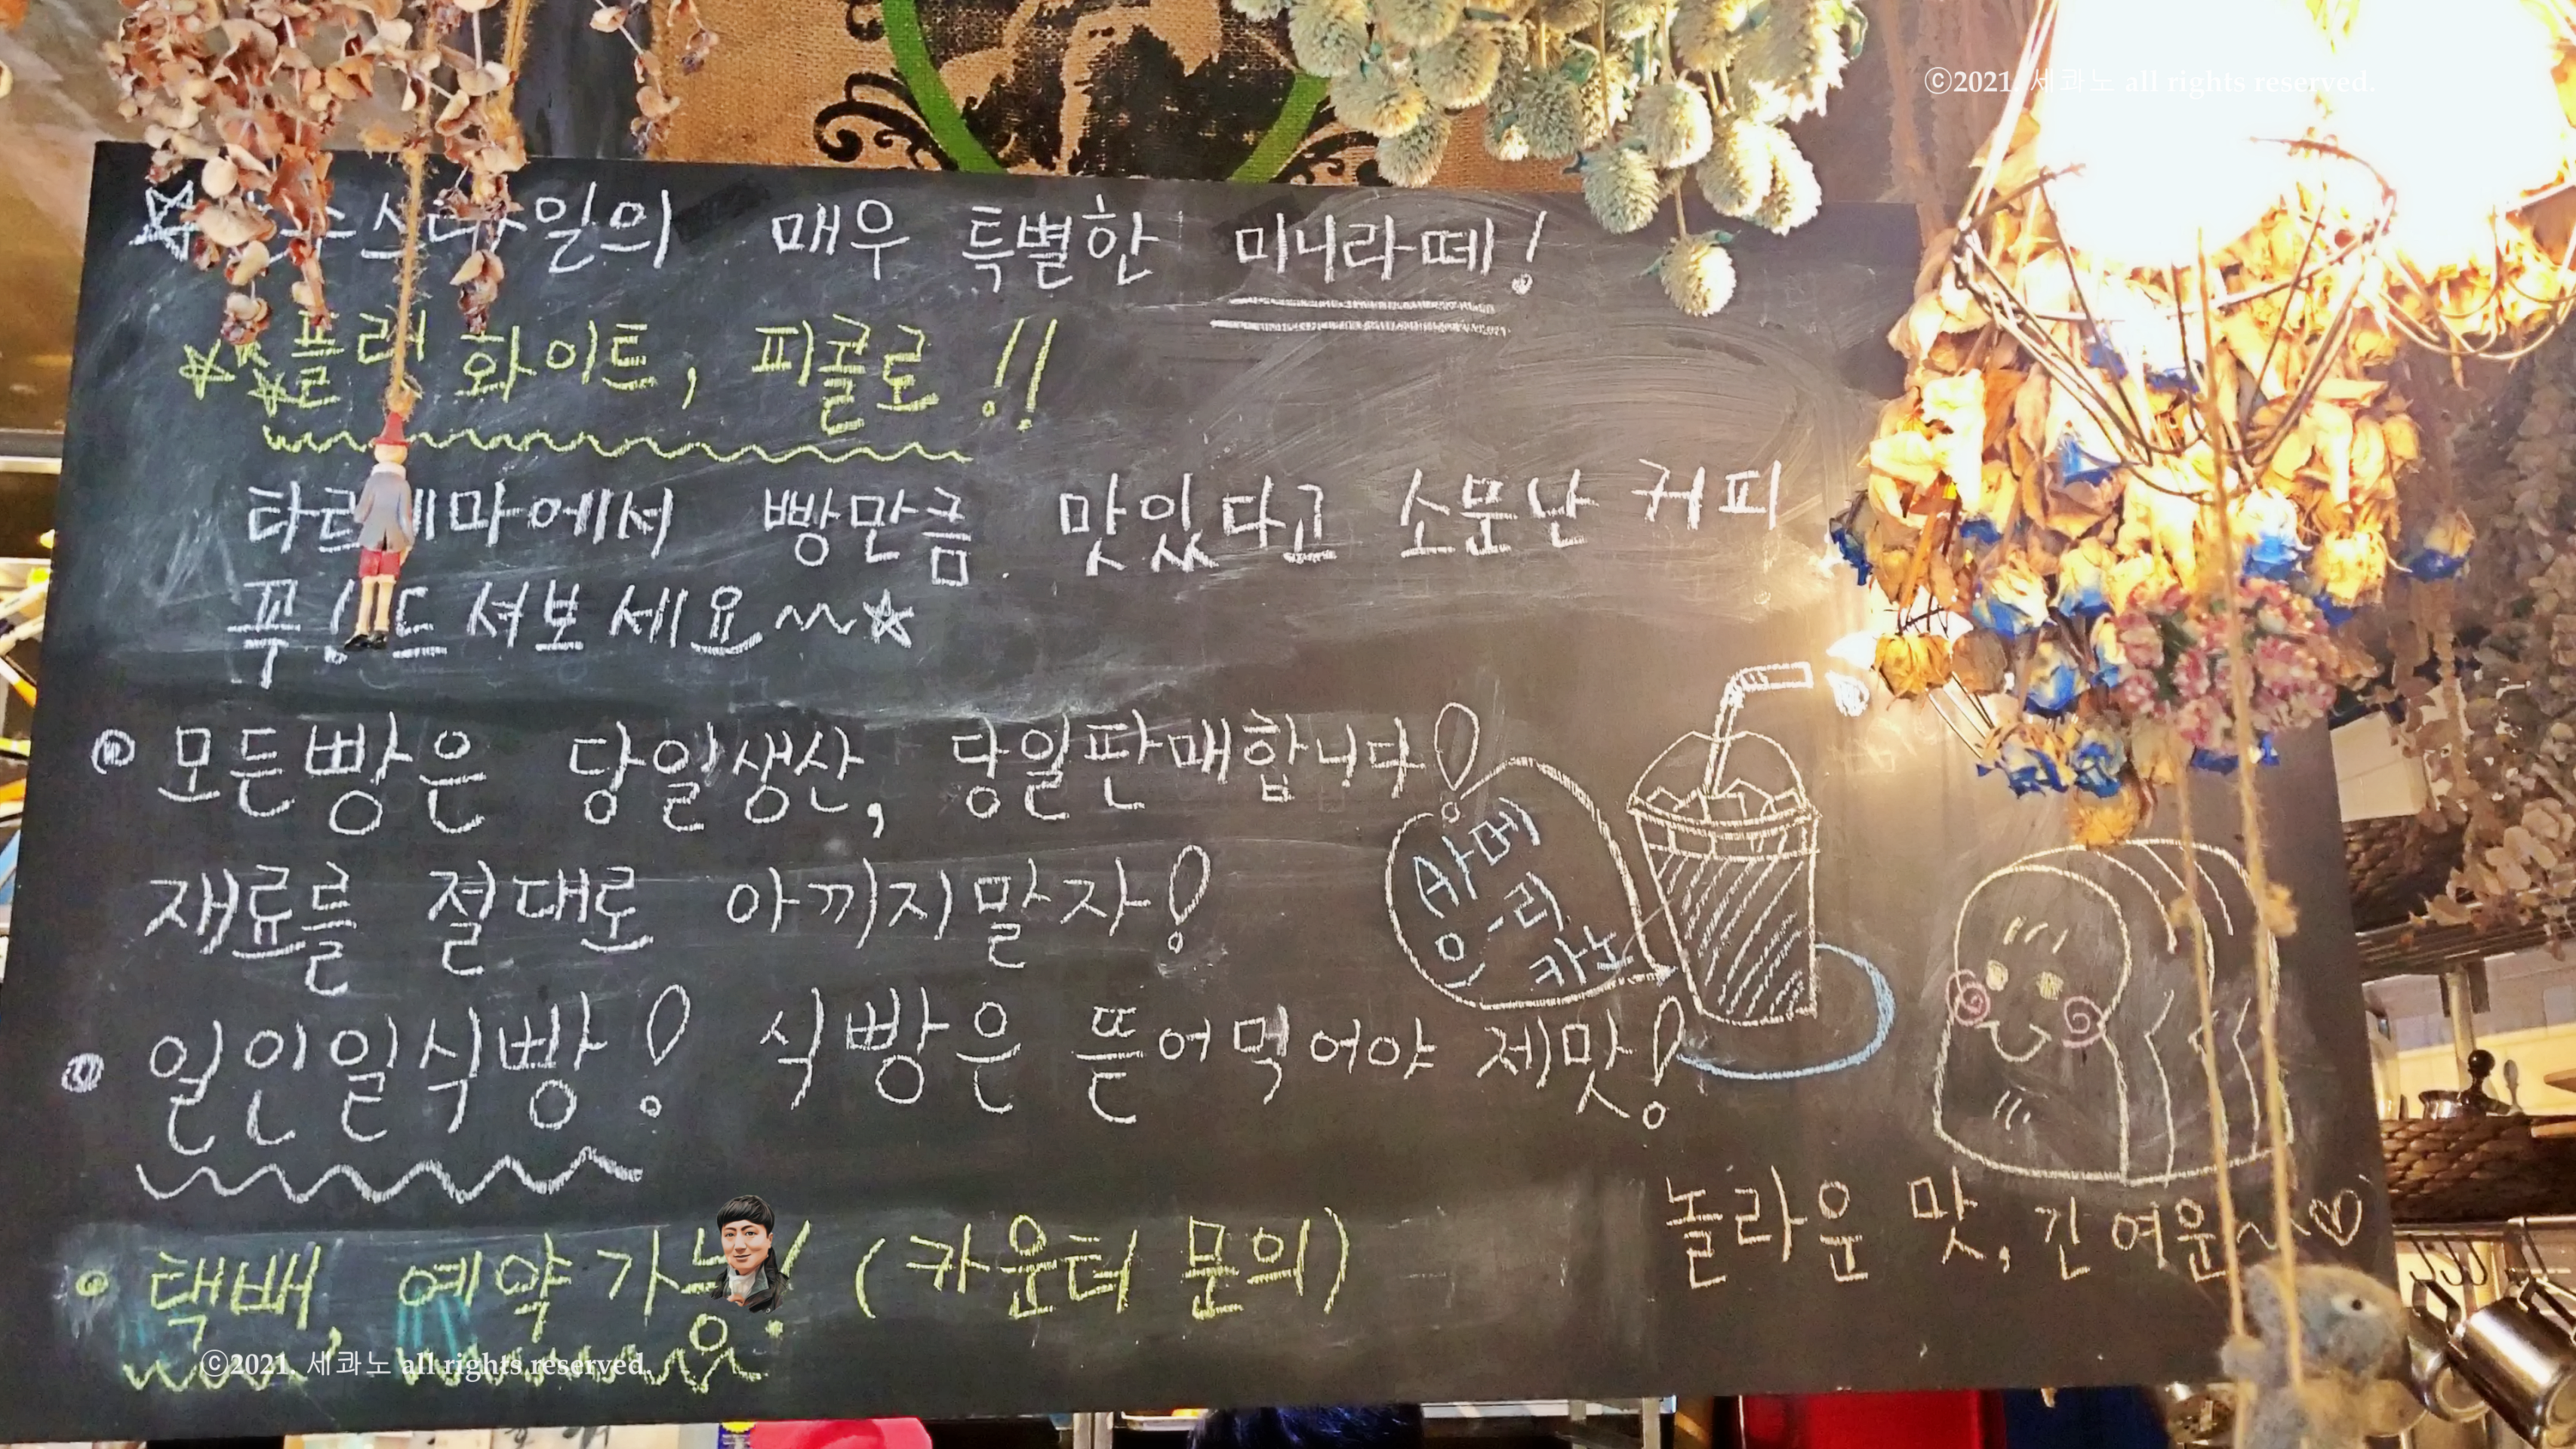 ©2021. 세콰노 all rights reserved.
스타일의 매우 특별한 미니라떼!
플랫 화이트, 피콜로!!
타르데마에서 빵만큼. 맛있다고 소문난 커피
꼭! 드셔보세요
모든빵은 당일생산, 당일판매합니다!
재료를 절대로 아끼지말자!
아메
리
카노
일인일식빵! 식빵은 뜯어먹어야 제맛!
놀라운 맛, 긴 여운~♡
택배, 예약가능! (카운터 문의)
©2021. 세콰노 all rights reserved.